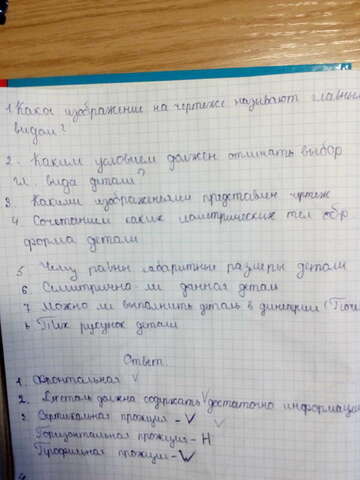 1 Какое изображение на чертеже называют главным
видом?
2. Каким условием должен отличать выбор
гл. вида детали?
3. Какими изображениями представлен чертеж
4 Сочетанием каких геометрических тел обр
форма детали
5 Чему равны габаритные размеры детали
6 Симметрично ли данная деталь
7 Можно ли выполнить деталь в диметрии (
рисунок детали
Ответ
1. Фронтальная V
2. Деталь должна содержать V достаточно информации
3. Вертикальная проэкция - V V
Горизонтальная проэкция - H
Профильная проэкция - W
4